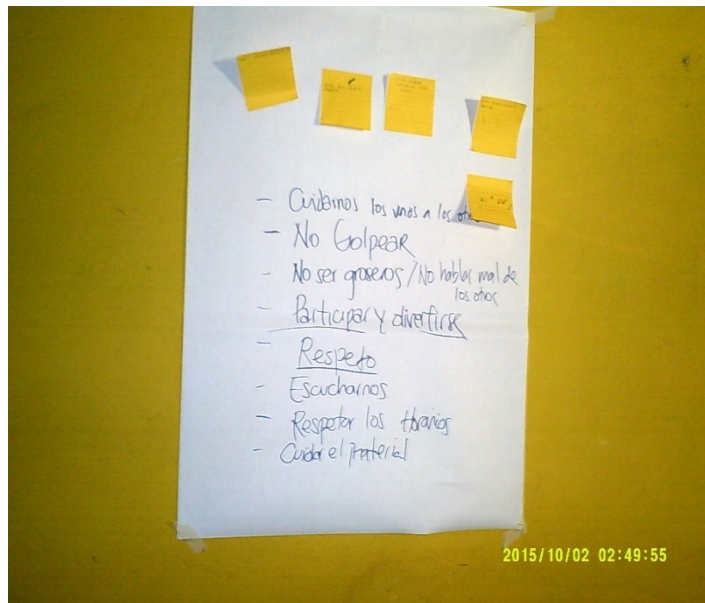 - Cuidarnos los unos a los otros
- No Golpear
- No ser groseros / No hablar mal de
los otros
- Participar y divertirse
- Respeto
- Escucharnos
- Respetar los Horarios
- Cuidar el material
2015/10/02 02:49:55